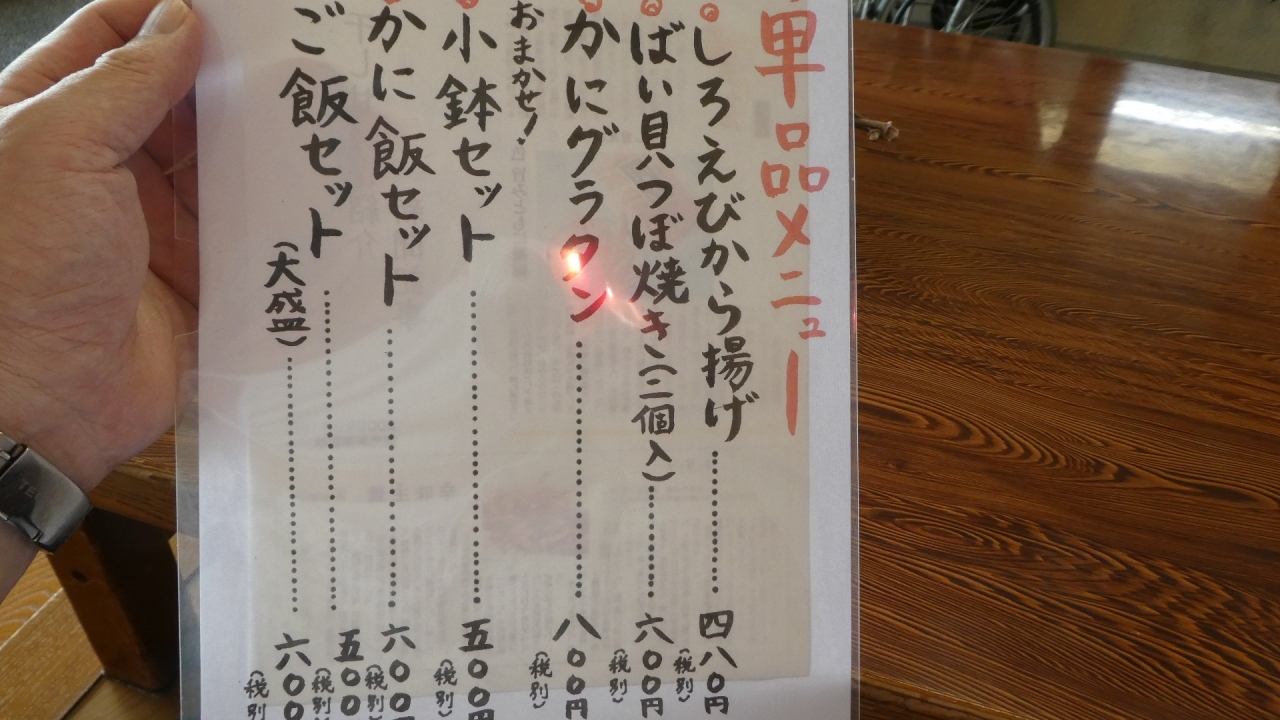 単品メニュー
しろえびから揚げ 四八〇円 (税別)
ばい貝つぼ焼き(二個入) 六〇〇円 (税別)
かにグラタン 八〇〇円 (税別)
おまかせ!
小鉢セット 五〇〇円 (税別)
かに飯セット 六〇〇円 (税別)
ご飯セット 五〇〇 (税別)
(大盛) 六〇〇 (税別